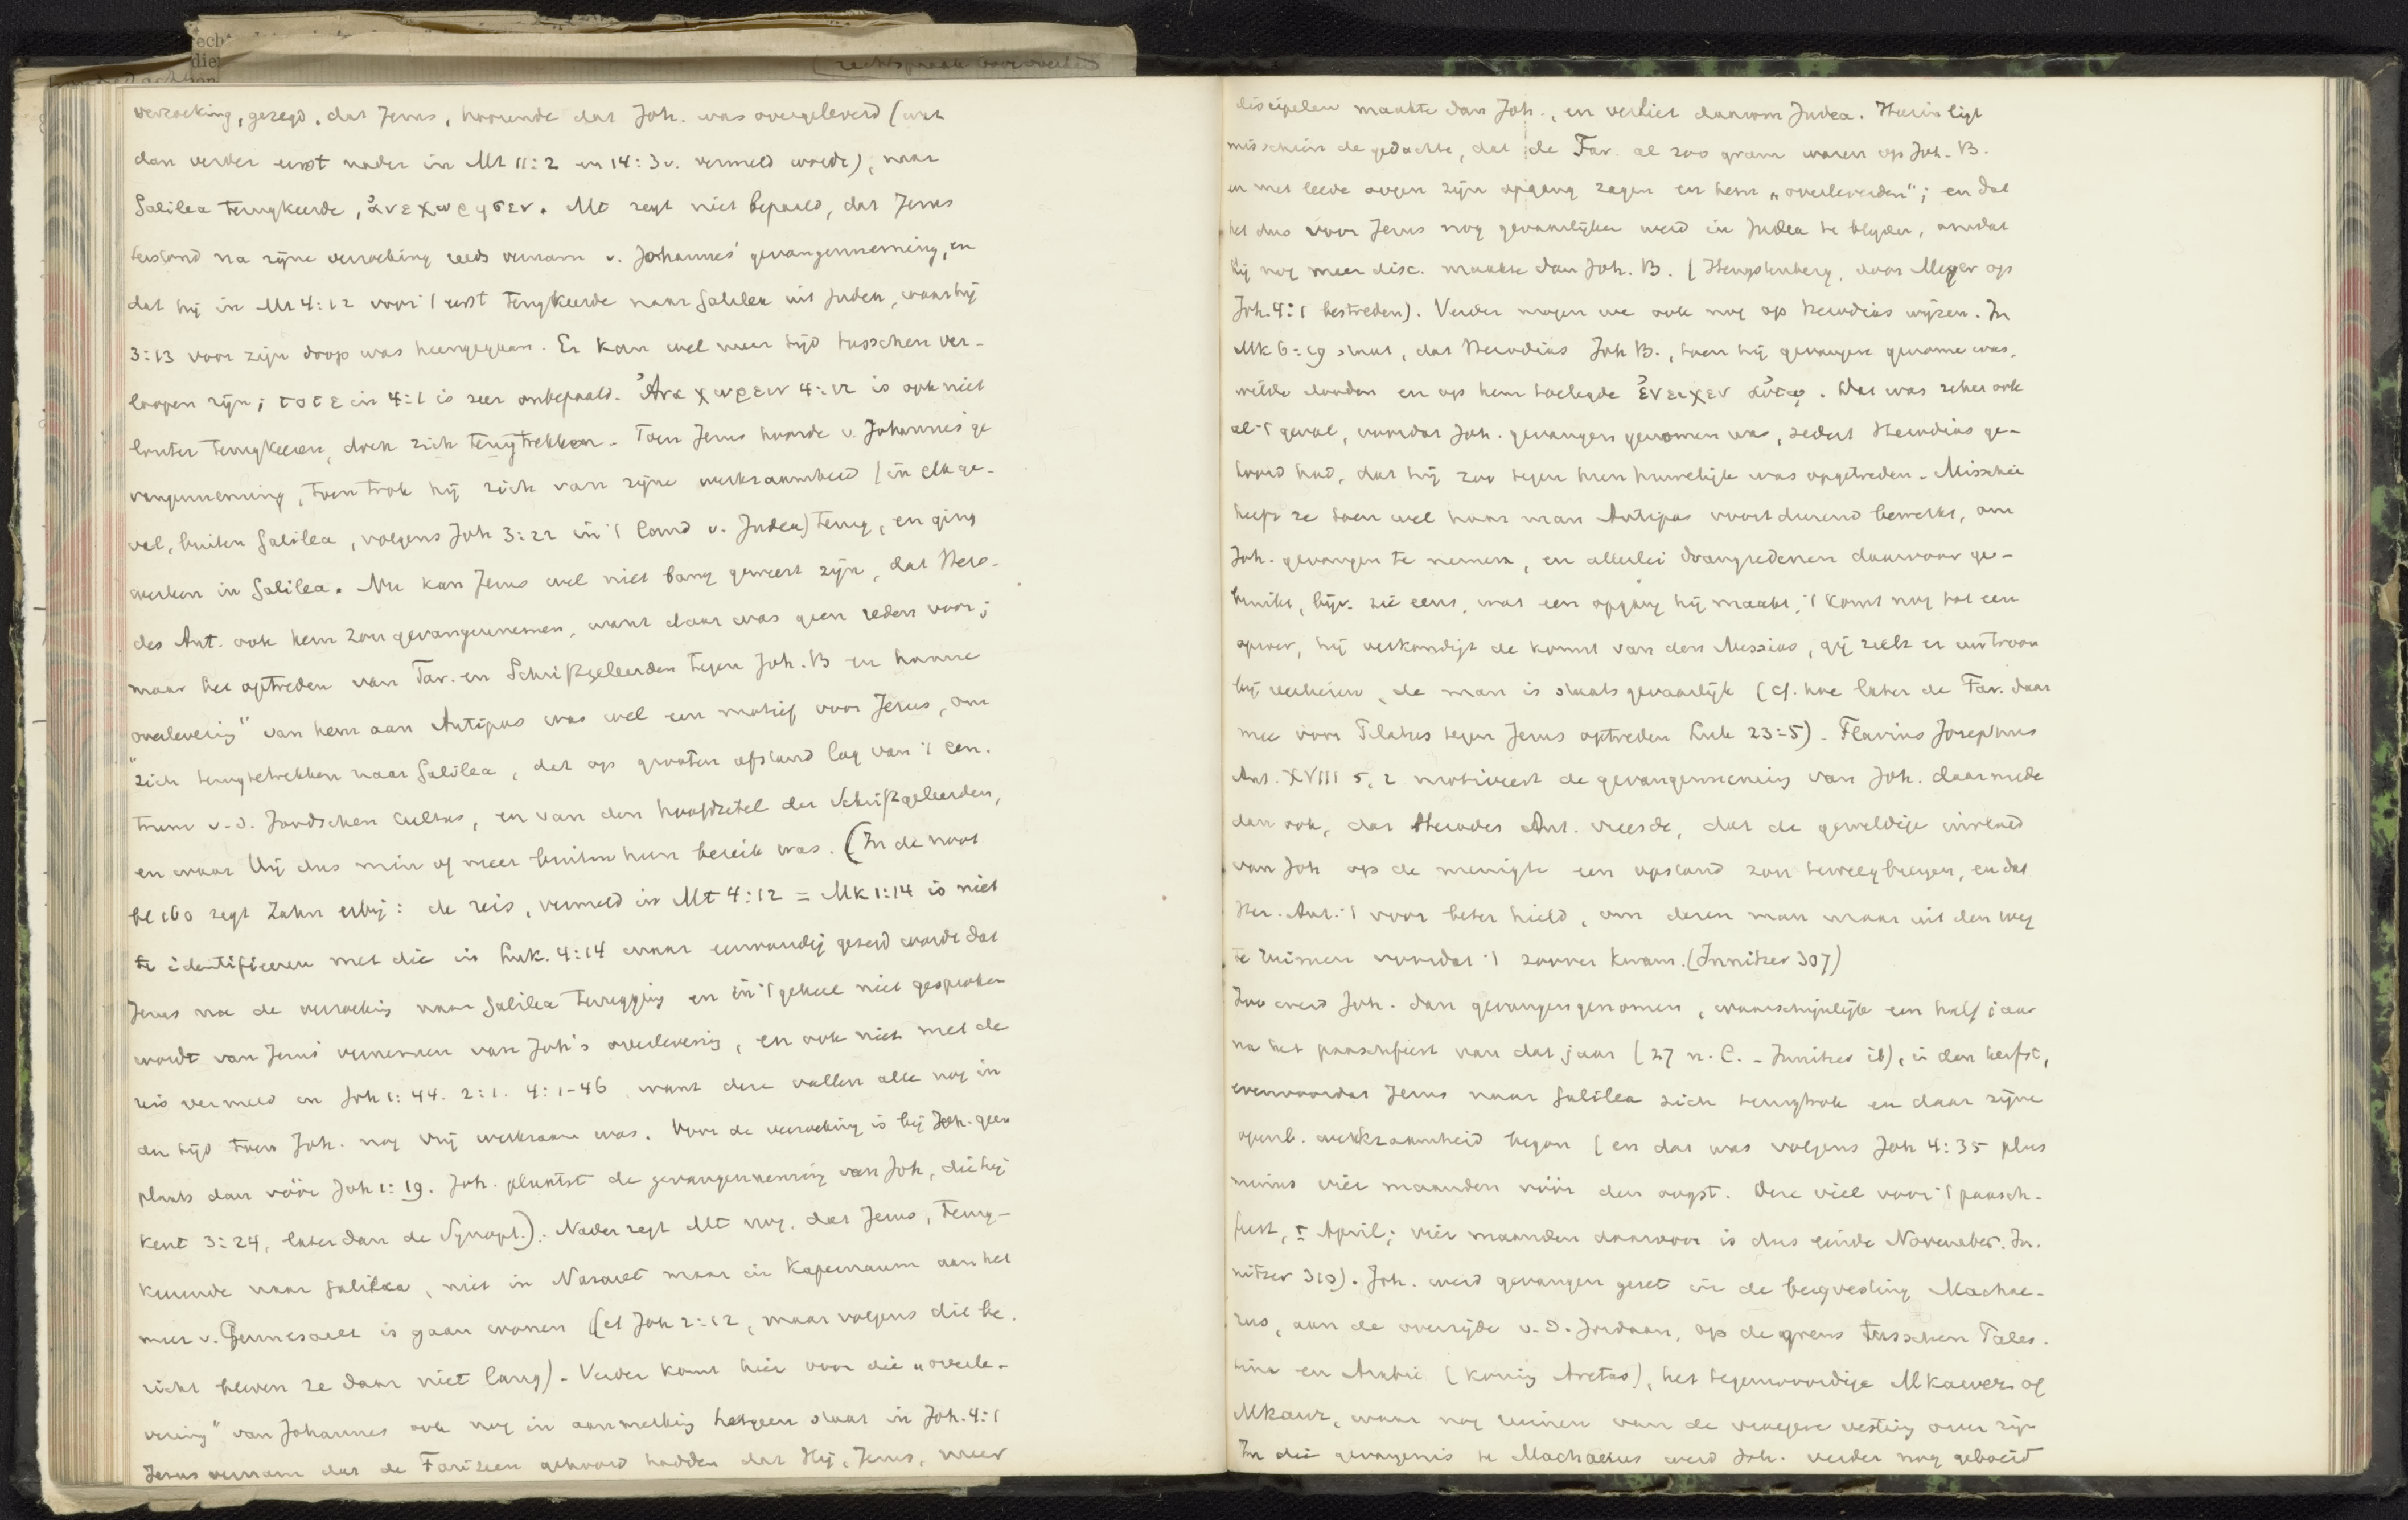 recht
die
rechtspraak
verzoeking, gezegd, dat Jezus, hoorende dat Joh. was overgeleverd (wat
dan verder eerst nader in Mt 11:2 en 14:3v. vermeld wordt), naar
Galilea terugkeerde, ἀνεχωρησεν. Mt zegt niet bepaald, dat Jezus
terstond na zijne verzoeking reeds vernam v. Johannes' gevangenneming, en
dat hij in Mt 4:12 voor 't eerst terugkeerde naar Galilea uit Judea, waar hij
3:13 voor zijn doop was heengegaan. Er kan wel meer tijd tusschen ver-
loopen zijn; τοτε in 4:1 is zeer onbepaald. Ἀναχωρειν 4:12 is ook niet
louter terugkeeren, doch zich terugtrekken. Toen Jezus hoorde v. Johannes' ge
vangenneming, toen trok hij zich van zijne werkzaamheid (in elk ge-
val, buiten Galilea, volgens Joh 3:22 in 't land v. Judea) terug, en ging
werken in Galilea. Nu kan Jezus wel niet bang geweest zijn, dat Hero-
des Ant. ook hem zou gevangennemen, want daar was geen reden voor;
maar het optreden van Far. en Schriftgeleerden tegen Joh. B en hunne
„overlevering" van hem aan Antipas was wel een motief voor Jezus, om
zich terugtetrekken naar Galilea, dat op grooten afstand lag van 't cen-
trum v. d. Joodschen cultus, en van den hoofdzetel der Schriftgeleerden,
en waar Hij dus min of meer buiten hun bereik was. (In de noot
bl 160 zegt Zahn erbij: de reis, vermeld in Mt 4:12 = Mk 1:14 is niet
te identificeeren met die in Luk. 4:14 waar eenvoudig gezegd wordt dat
Jezus na de verzoeking naar Galilea terugging en in 't geheel niet gesproken
wordt van Jezus' vernemen van Joh's overlevering, en ook niet met de
reis vermeld in Joh 1:44. 2:1. 4:1-46, want deze vallen alle nog in
den tijd toen Joh. nog vrij werkzaam was. Voor de verzoeking is bij Joh. geen
plaats dan vóór Joh 1:19. Joh. plaatst de gevangenneming van Joh, die hij
kent 3:24, later dan de Synopt.). Nader zegt Mt nog, dat Jezus, terug-
keerende naar Galilea, niet in Nazaret maar in Kapernaum aan het
meer v. Gennesaret is gaan wonen (cf Joh 2:12, maar volgens dit be-
richt bleven ze daar niet lang). Verder komt hier voor die „overle-
vering" van Johannes ook nog in aanmerking hetgeen staat in Joh. 4:1
Jezus vernam dat de Farizeen gehoord hadden dat Hij, Jezus, meer
discipelen maakte dan Joh., en verliet daarom Judea. Hierin ligt
misschien de gedachte, dat de Far. al zoo gram waren op Joh. B.
en met leede oogen zijn opgang zagen en hem „overleverden"; en dat
het dus voor Jezus nog gevaarlijker werd in Judea te blijven, omdat
hij nog meer disc. maakte dan Joh. B. (Hengstenberg, door Meyer op
Joh. 4:1 bestreden). Verder mogen we ook nog op Herodias wijzen. In
Mk 6:19 staat, dat Herodias Joh B., toen hij gevangen genomen was,
wilde dooden en op hem toelegde ἐνειχεν αὐτῳ. Dat was zeker ook
al 't geval, voordat Joh. gevangen genomen was, sedert Herodias ge-
hoord had, dat hij zoo tegen hun huwelijk was opgetreden. Misschien
heeft ze toen wel haar man Antipas voortdurend bewerkt, om
Joh. gevangen te nemen, en allerlei drangredenen daarvoor ge-
bruikt, bijv. zie eens, wat een opgang hij maakt, 't komt nog tot een
oproer, hij verkondigt de komst van den Messias, gij zult er uw troon
bij verliezen, de man is staatsgevaarlijk (cf. hoe later de Far. daar
mee voor Pilatus tegen Jezus optreden Luk 23:5). Flavius Josephus
Ant. XVIII 5,2 motiveert de gevangenneming van Joh. daarmede
dan ook, dat Herodes Ant. vreesde, dat de geweldige invloed
van Joh op de menigte een opstand zou teweegbrengen, en dat
Her. Ant. 't voor beter hield, om dezen man maar uit den weg
te ruimen voordat 't zoover kwam. (Innitzer 307)
Zoo werd Joh. dan gevangengenomen, waarschijnlijk een half jaar
na het paaschfeest van dat jaar (27 n. C. - Innitzer ib), in den herfst,
evenvoordat Jezus naar Galilea zich terugtrok en daar zijne
openb. werkzaamheid begon (en dat was volgens Joh 4:35 plus
minus vier maanden vóór den oogst. Deze viel voor 't paasch-
feest, ± April; vier maanden daarvoor is dus einde November. In-
nitzer 310). Joh. werd gevangen gezet in de bergvesting Machae-
rus, aan de overzijde v. d. Jordaan, op de grens tusschen Pales-
tina en Arabië (koning Aretas), het tegenwoordige Mkawer of
Mkaur, waar nog ruinen van de vroegere vesting over zijn
In die gevangenis te Machaerus werd Joh. verder nog geboeid